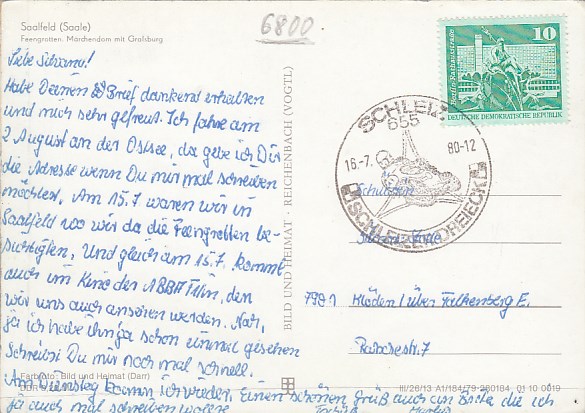 Saalfeld (Saale)
Feengrotten. Märchendom mit Gralsburg
6800
Liebe Silvana!
Habe Deinen Brief dankend erhalten
und mich sehr gefreut. Ich fahre am
2 August an der Ostsee, da gebe ich Dir
die Adresse wenn Du mir mal schreiben
möchtest. Am 15.7 waren wir in
Saalfeld wo wir da die Feengrotten be-
sichtigten. Und gleich am 15.7. kommt
auch im Kino der ABBA Film, den
wir uns auch ansehen werden. Na,
ja ich habe ihn ja schon einmal gesehen
Schreibst Du mir noch mal schnell.
Am Dienstag komm ich wieder. Einen schönen Gruß auch an Britta die ich
ja auch mal schreiben wollte.
BILD UND HEIMAT · REICHENBACH (VOGTL)
10
Berlin, Rathausstraße
DEUTSCHE DEMOKRATISCHE REPUBLIK
SCHLEIZ
655
16.-7. 80-12
SCHLEIZER DREIECK
7981 Klöden / über Falkenberg E.
Farbfoto: Bild und Heimat (Darr)
III/26/13 A1/184/79-280184 01 10 0019